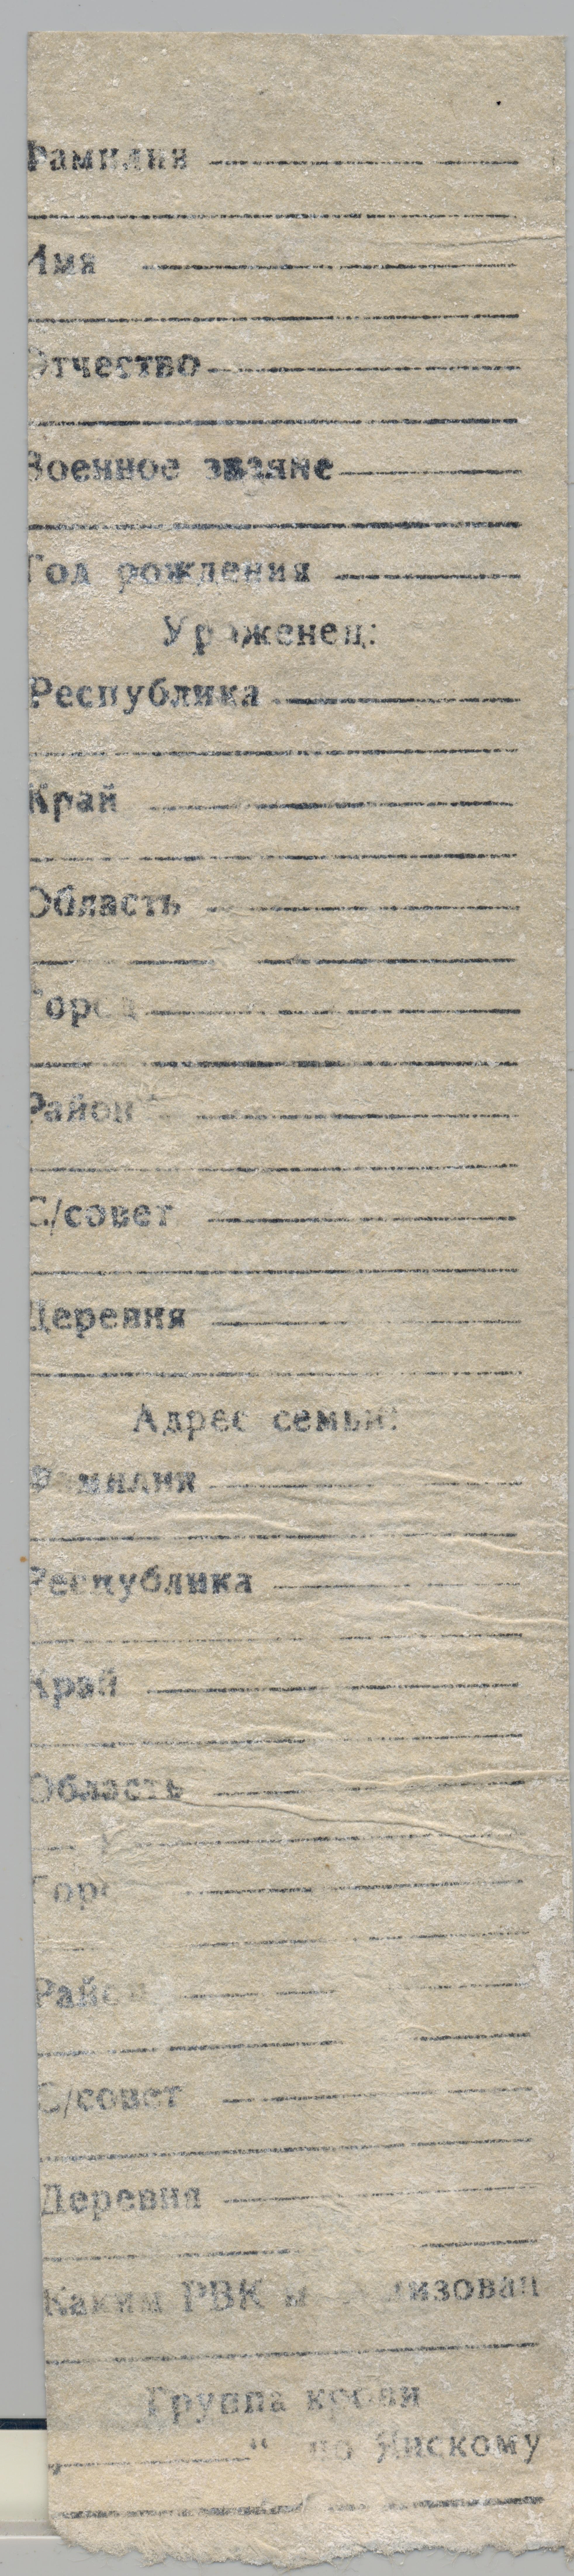 Фамилия
Имя
Отчество
Военное звание
Год рождения
Уроженец:
Республика
Край
Область
Город
Район
С/совет
Деревня
Адрес семьи:
Фамилия
Республика
Край
Область
Город
Район
С/совет
Деревня
Каким РВК мобилизован
Группа крови
" по Янскому